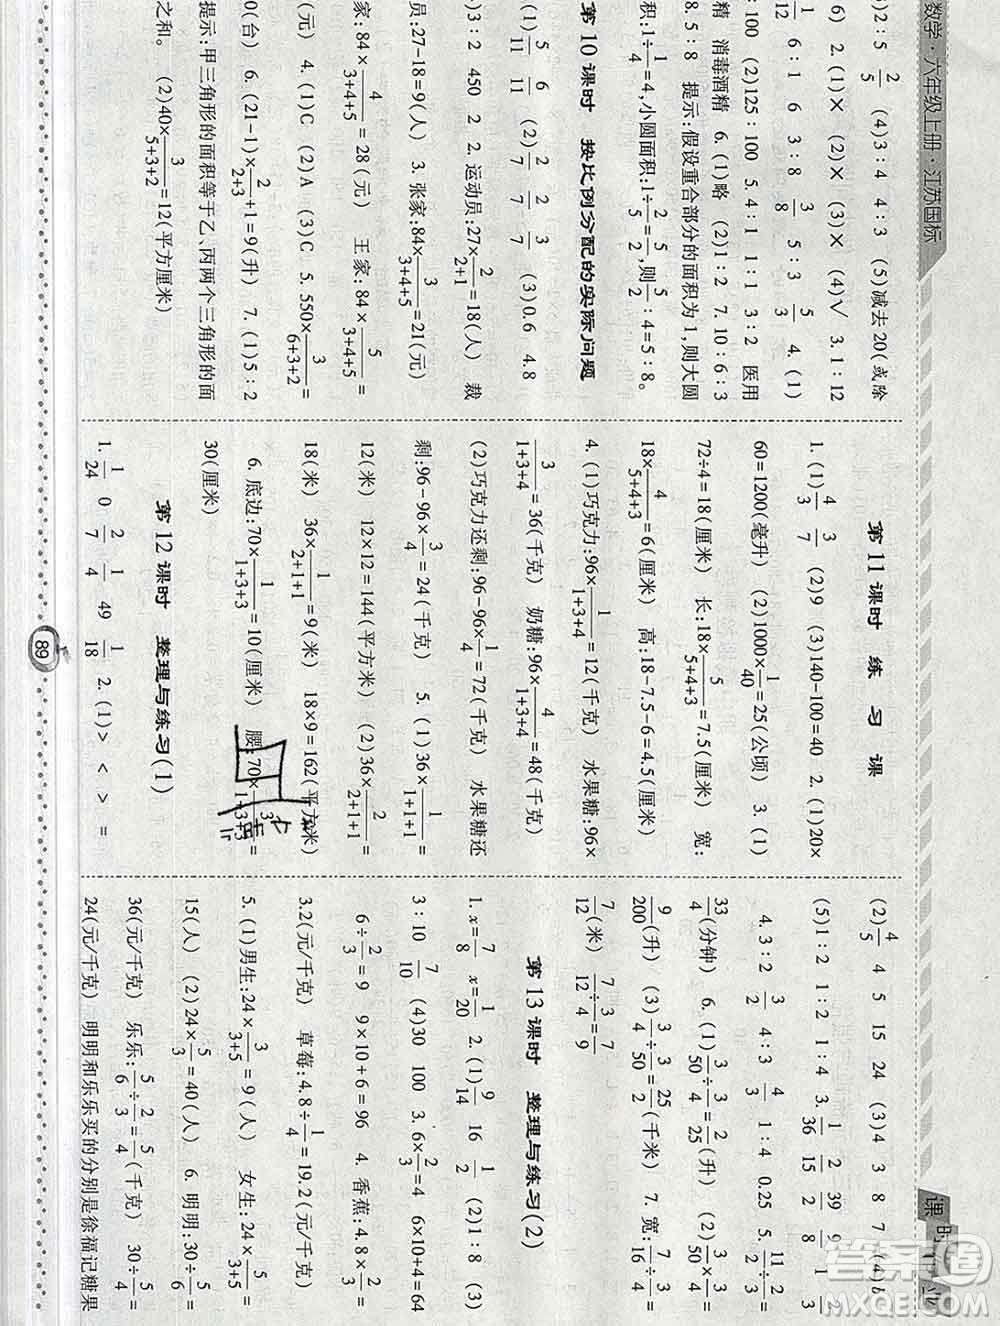 数学·六年级上册·江苏国标
课时作业
)2 : 5 2/5 (4)3 : 4 4 : 3 (5)减去20(或除
6) 2. (1)× (2)× (3)× (4)√ 3. 1 : 12
1/12 6 : 1 6 3 : 8 3/8 5 : 3 5/3 4. (1)
: 100 (2)125 : 100 5. 4 : 1 1 : 1 3 : 2 医用
精 消毒酒精 6. (1)略 (2)1 : 2 7. 10 : 6 : 3
8. 5 : 8 提示:假设重合部分的面积为1,则大圆
积:1÷1/4=4,小圆面积:1÷2/5=5/2,则5/2 : 4=5 : 8。
第10课时 按比例分配的实际问题
(1)5/11 6/11 (2)2/7 2/7 3/7 (3)0.6 4.8
)3 : 2 450 2. 运动员:27×2/(2+1)=18(人) 裁
员:27-18=9(人) 3. 张家:84×3/(3+4+5)=21(元)
家:84×4/(3+4+5)=28(元) 王家:84×5/(3+4+5)=
(元) 4. (1)C (2)A (3)C 5. 550×3/(6+3+2)=
0(台) 6. (21-1)×2/(2+3)+1=9(升) 7. (1)5 : 2
提示:甲三角形的面积等于乙、丙两个三角形的面
之和。 (2)40×3/(5+3+2)=12(平方厘米)
第11课时 练 习 课
1. (1)4/3 3/7 (2)9 (3)140-100=40 2. (1)20×
60=1200(毫升) (2)1000×1/40=25(公顷) 3. (1)
72÷4=18(厘米) 长:18×5/(5+4+3)=7.5(厘米) 宽:
18×4/(5+4+3)=6(厘米) 高:18-7.5-6=4.5(厘米)
4. (1)巧克力:96×1/(1+3+4)=12(千克) 水果糖:96×
3/(1+3+4)=36(千克) 奶糖:96×4/(1+3+4)=48(千克)
(2)巧克力还剩:96-96×1/4=72(千克) 水果糖还
剩:96-96×3/4=24(千克) 5. (1)36×1/(1+1+1)=
12(米) 12×12=144(平方米) (2)36×2/(2+1+1)=
18(米) 36×1/(2+1+1)=9(米) 18×9=162(平方米)
6. 底边:70×1/(1+3+3)=10(厘米) 腰:70×3/(1+3+3)=
30(厘米)
第12课时 整理与练习(1)
1. 1/24 0 2/7 1/4 49 1/18 2. (1)> < > =
(2)4/5 4 5 15 24 (3)4 3 8 7 (4)b
(5)1 : 2 1 : 2 1 : 4 3. 1/36 2/15 39/2 9/8 1 2/3
4. 3 : 2 3/2 4 : 3 4/3 1 : 4 0.25 5. 11/2÷2/3=
33/4(分钟) 6. (1)3/50÷3/4=2/25(升) (2)3/50×3/4=
9/200(升) (3)3/4÷3/50=25/2(千米) 7. 宽:7/16÷3/4=
7/12(米) 7/12÷3/4=7/9
第13课时 整理与练习(2)
1. x=7/8 x=1/20 2. (1)9/14 16 1/2 (2)1 : 8 (3)
3 : 10 7/10 (4)30 100 3. 6×2/3=4 6×10+4=64
6÷2/3=9 9×10+6=96 4. 香蕉:4.8×2/3=
3.2(元/千克) 草莓:4.8÷1/4=19.2(元/千克)
5. (1)男生:24×3/(3+5)=9(人) 女生:24×5/(3+5)=
15(人) (2)24×5/3=40(人) 6. 明明:30÷5/6=
36(元/千克) 乐乐:5/6÷2/3=5/4(千克) 30÷5/4=
24(元/千克) 明明和乐乐买的分别是徐福记糖果
89
答案圈
MXQE.COM